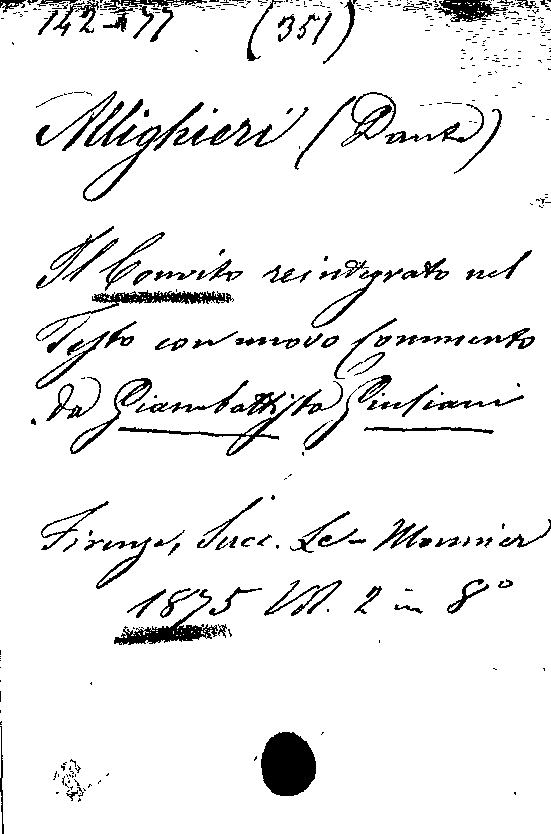 142-77 (351)
Allighieri (Dante)
Il Convito reintegrato nel
Testo con nuovo Commento
da Giambattista Giuliani
Firenze, Succ. Le-Monnier
1875 Vol. 2 in 8º